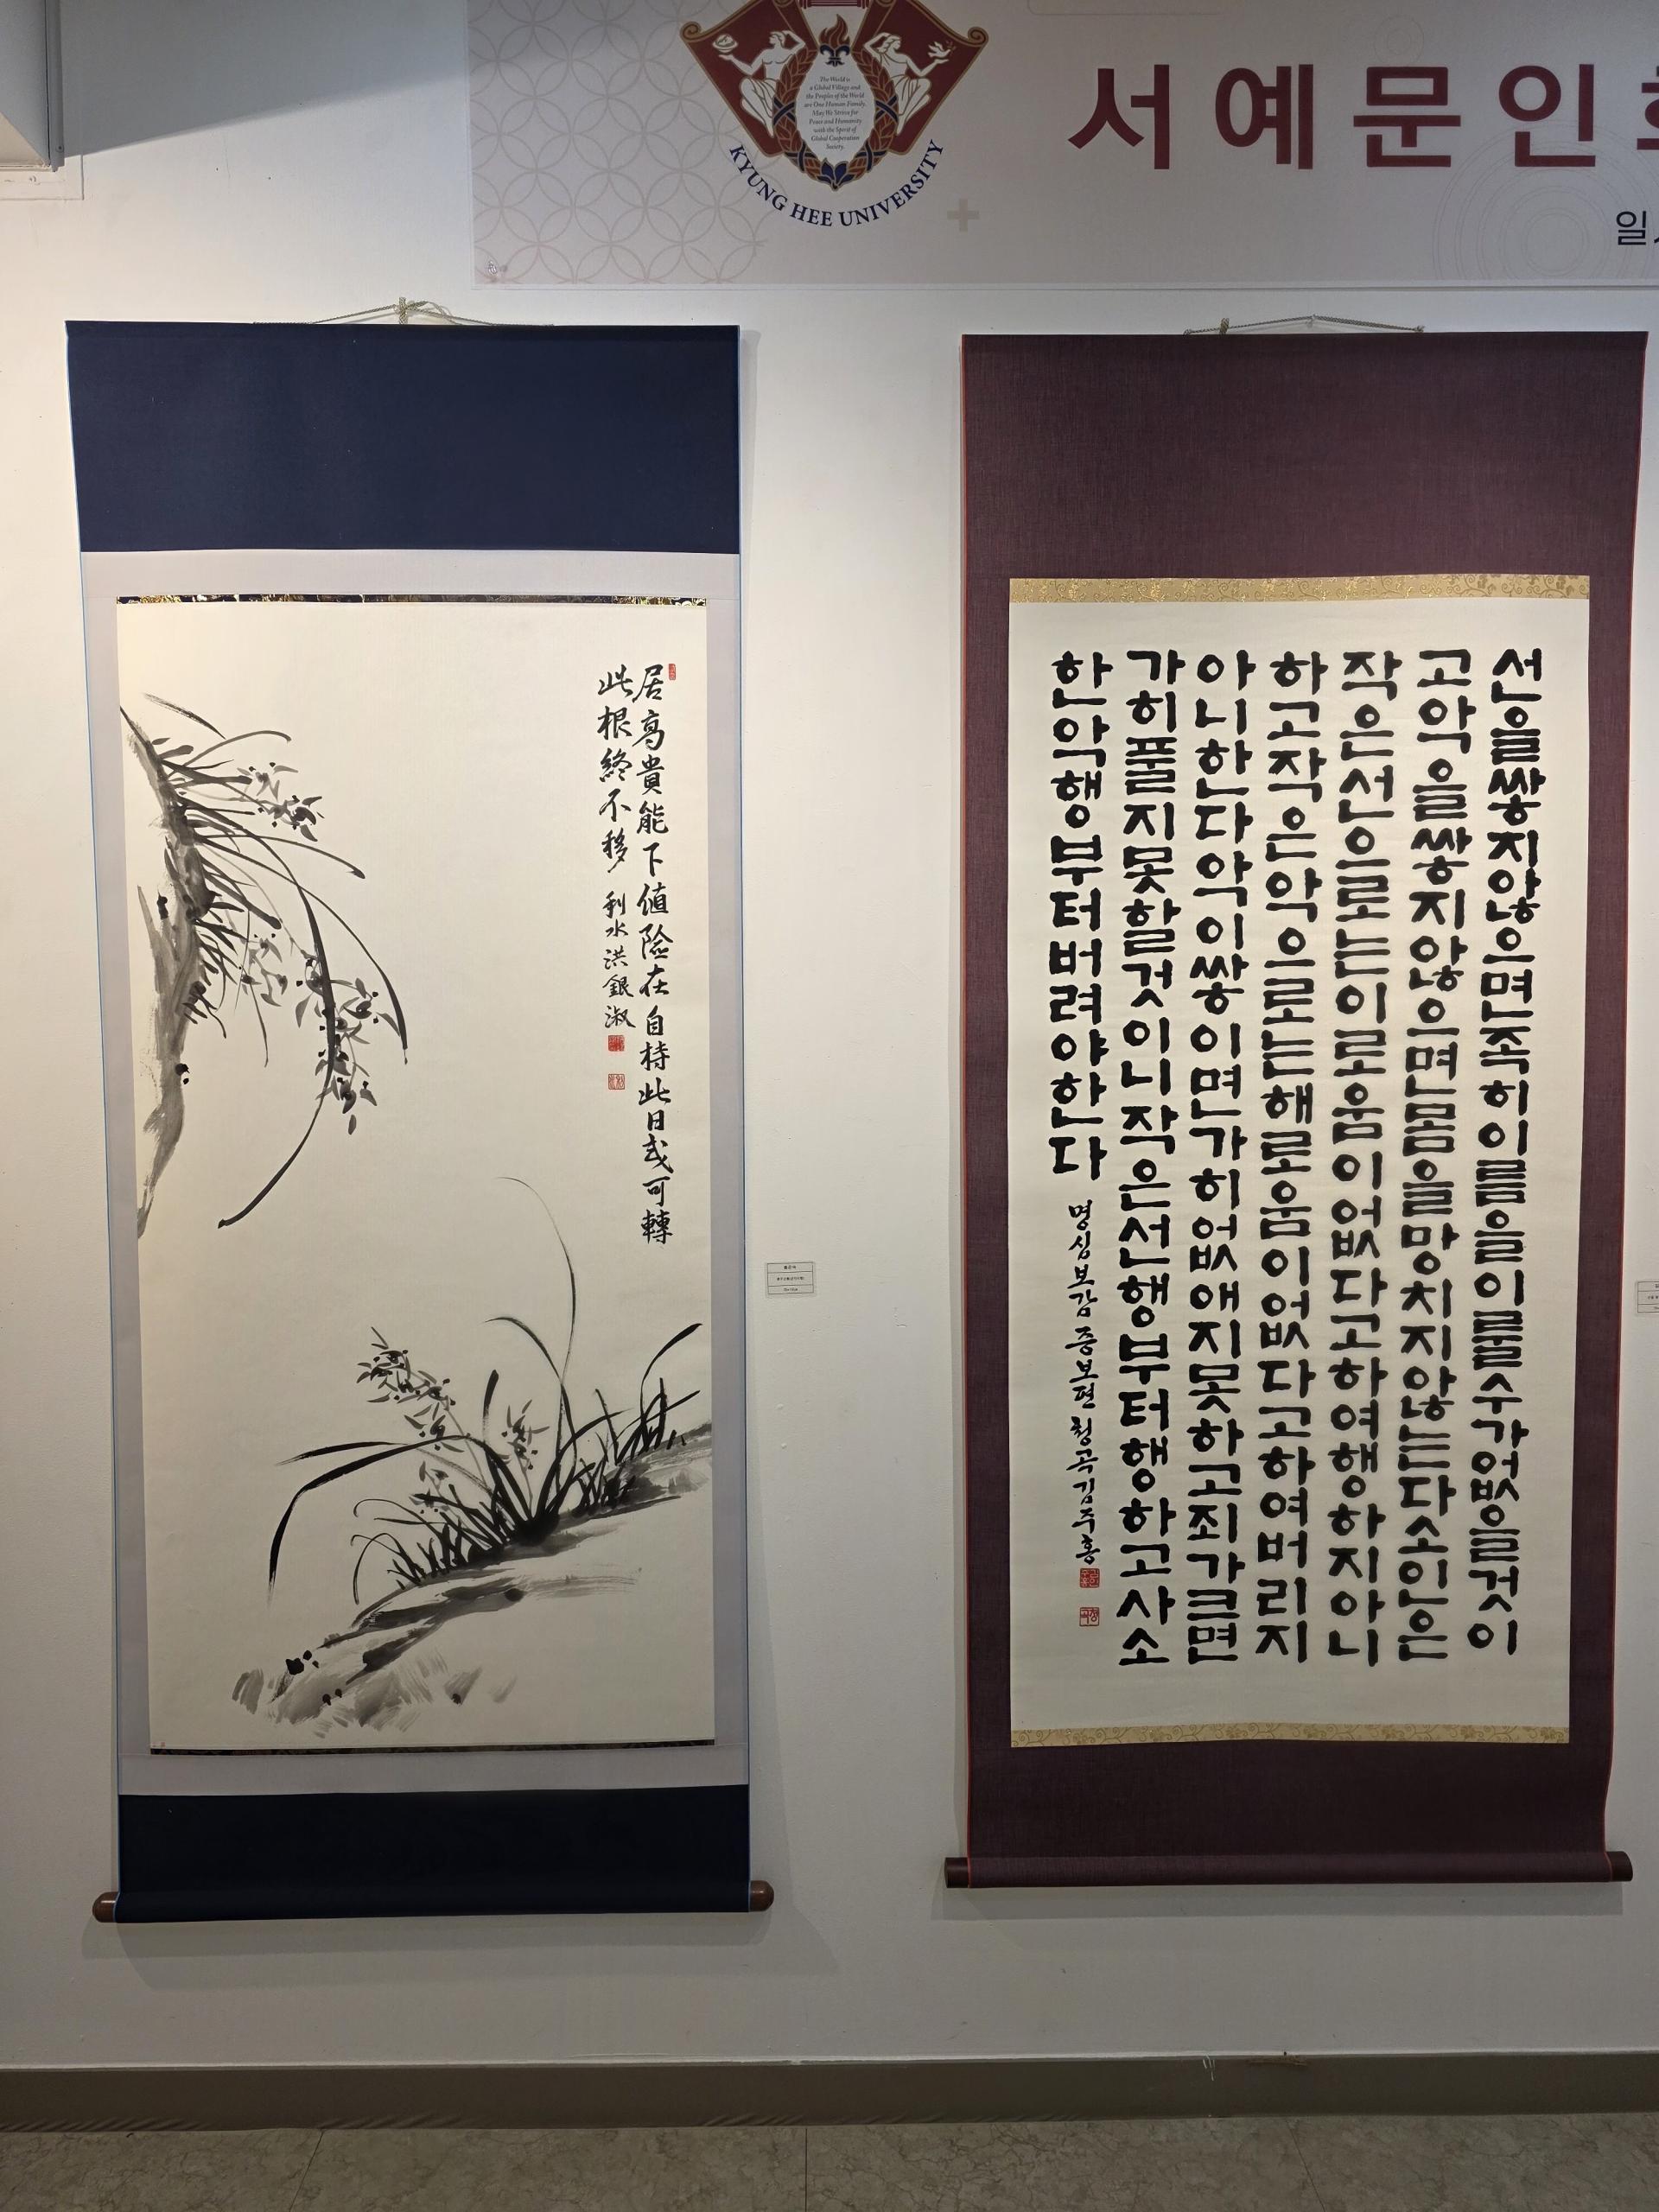 The World is
a Global Village and
the Peoples of the World
are One Human Family.
May We Strive for
Peace and Humanity
with the Spirit of
Global Cooperation
Society.
KYUNG HEE UNIVERSITY
서예문인
일
居高貴能下値險在自持此日或可轉
此根終不移
利水洪銀淑
선을쌓지않으면족히이름을이룰수가없을것이
고악을쌓지않으면몸을망치지않는다소인은
작은선으로는이로움이없다고하여행하지아니
하고작은악으로는해로움이없다고하여버리지
아니한다악이쌓이면가히없애지못하고죄가클면
가히풀지못할것이니작은선행부터행하고사소
한악행부터버려야한다
명심보감 증보편 청곡김주홍